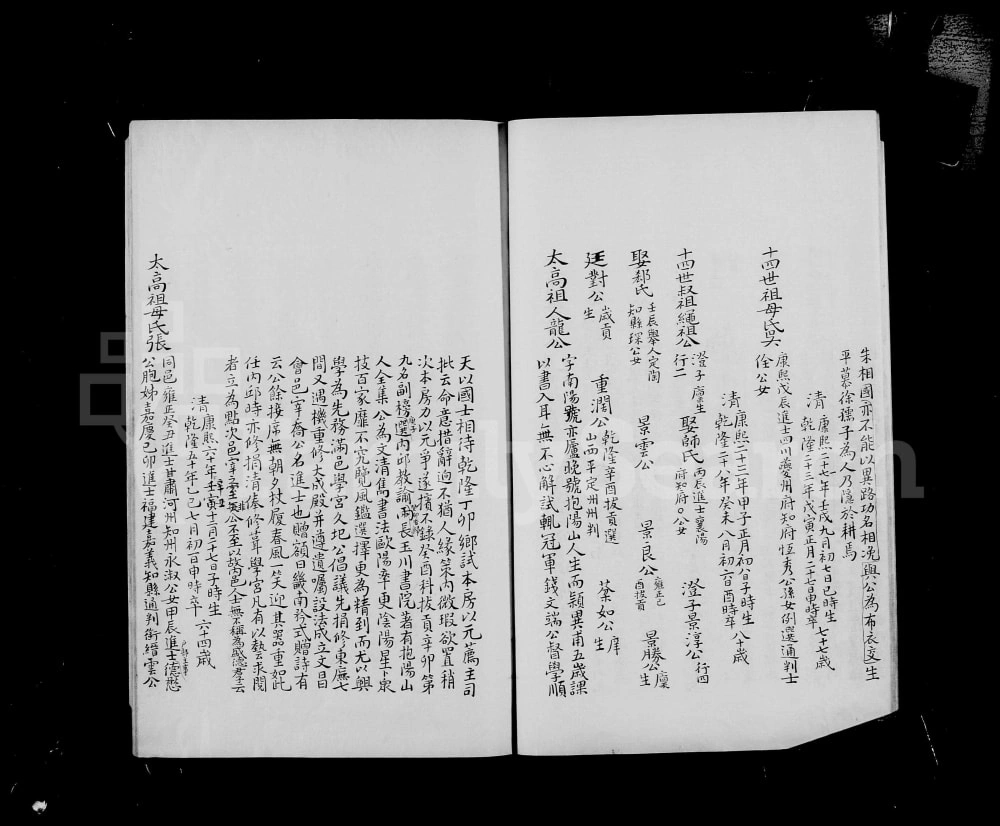 朱相國亦不能以異路功名相浼與公為布衣交生
平慕徐孺子為人乃隱於耕焉
清 康熙二十七年壬戌九月初七日巳時生 七十七歲
乾隆二十三年戊寅正月二十七日申時卒
十四世祖母氏吳 康熙戊辰進士四川夔州府知府恆秀公孫女例選通判士
佺公女
清 康熙二十三年甲子正月初八日子時生 八十歲
乾隆二十八年癸未八月初六日酉時卒
十四世叔祖繩祖公 行二 澄子 廩生 娶師氏 丙辰進士襄陽府知府○公女 澄子景淳公 行四
娶郄氏 壬辰舉人定陶知縣琛公女 景雲公 景良公 雍正己酉拔貢 景勝公 廩生
廷對公 歲貢生 重潤公 乾隆辛酉拔貢選山西平定州州判 蓁如公 庠生
太高祖人龍公 字南陽號亦廬晚號抱陽山人生而穎異甫五歲課
以書入耳無不心解試輒冠軍錢文端公督學順
天以國士相待乾隆丁卯鄉試本房以元薦主司
批云命意措辭迥不猶人緣策內微瑕欲置稍
次本房力以元爭遂擯不錄癸酉科拔貢辛卯第
九名副榜選內邱教諭兩長玉川書院著有抱陽山
人全集公為文清雋書法歐陽率更陰陽星卜泉
技百家靡不究覽風鑑選擇更為精到而尤以興
學為先務滿邑學宮久圮公倡議先捐修東廡七
間又遇機重修大成殿并遵遺囑設法成立文昌
會邑宰喬公名進士也贈額曰畿南矜式贈詩有
云公餘接席無朝夕杖履春風一笑迎其器重如此
任內邱時亦修捐清俸修葺學宮凡有以藝求閱
者立為點次邑宰至無公不至以故邑人士無不稱為盛德孝云
清 康熙六十年壬寅十二月二十七日子時生 六十四歲
乾隆五十年乙巳七月初一日申時卒
太高祖母氏張 同邑雍正癸丑進士甘肅河州知州永淑公女甲辰進士德懋
公胞姊嘉慶己卯進士福建嘉義知縣通判銜縉雲公